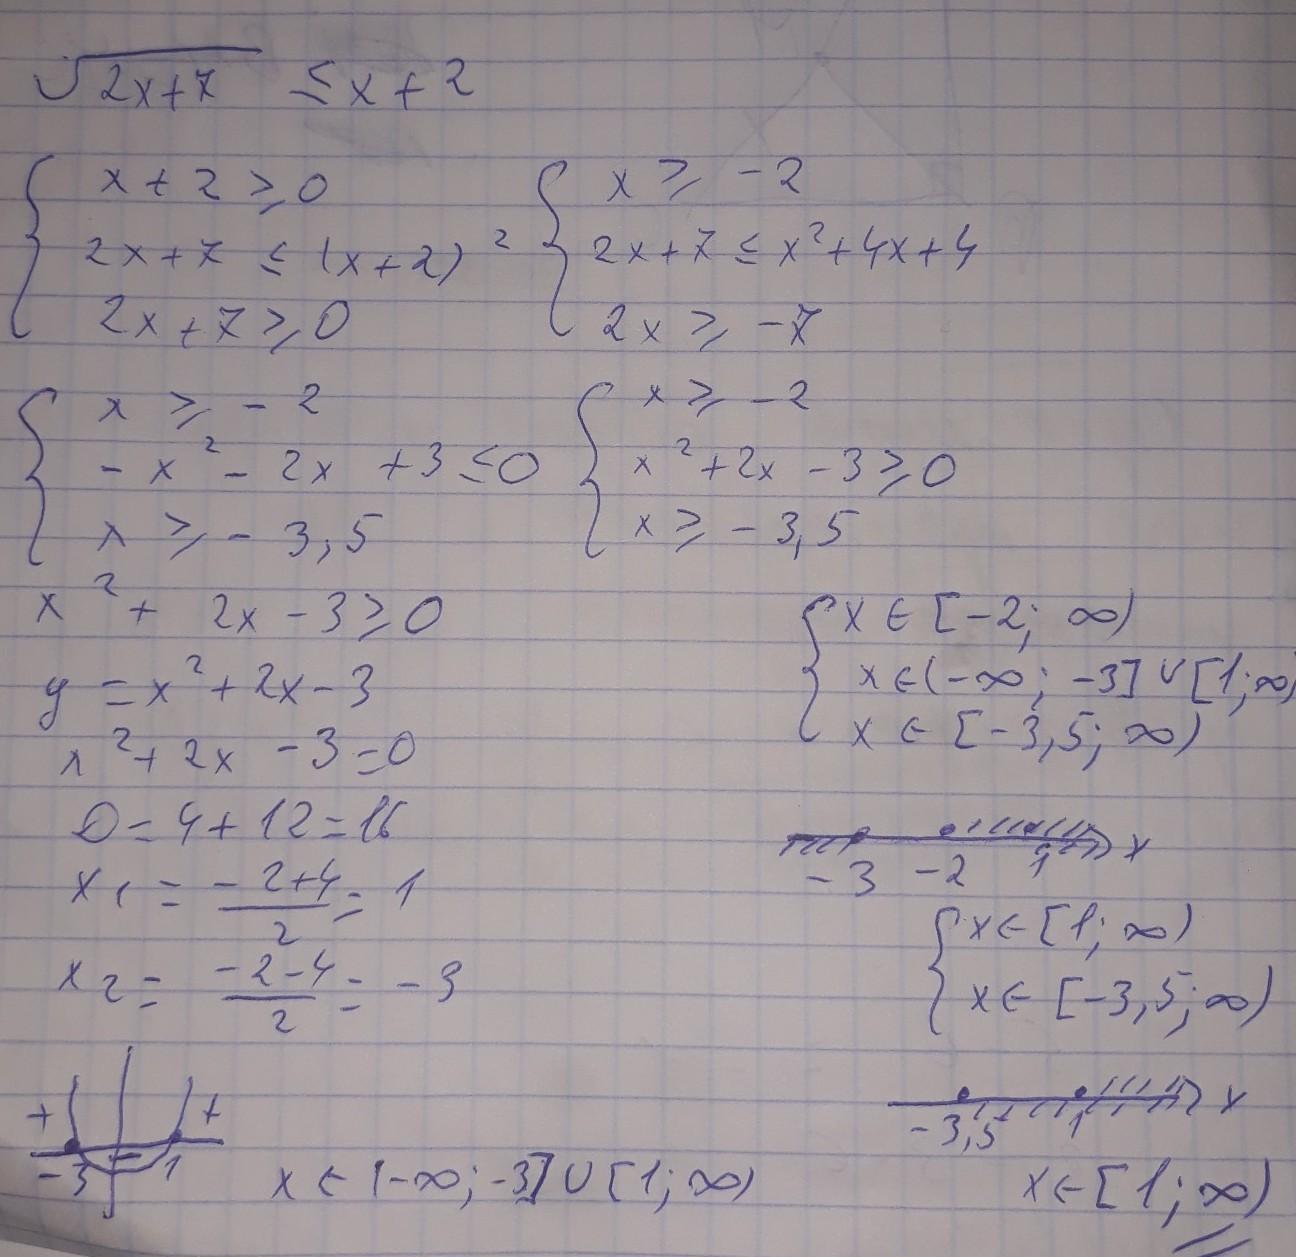 √(2x+7) ≤ x+2
{ x+2 ≥ 0 { x ≥ -2
2x+7 ≤ (x+2)² 2x+7 ≤ x²+4x+4
2x+7 ≥ 0 2x ≥ -7
{ x ≥ -2 { x ≥ -2
-x²-2x+3 ≤ 0 x²+2x-3 ≥ 0
x ≥ -3,5 x ≥ -3,5
x²+2x-3 ≥ 0
y = x²+2x-3
x²+2x-3=0
D=4+12=16
x₁ = (-2+4)/2 = 1
x₂ = (-2-4)/2 = -3
+ +
-3 - 1
x ∈ (-∞; -3] ∪ [1; ∞)
{ x ∈ [-2; ∞)
x ∈ (-∞; -3] ∪ [1; ∞)
x ∈ [-3,5; ∞)
-3 -2 1 x
{ x ∈ [1; ∞)
x ∈ [-3,5; ∞)
-3,5 1 x
x ∈ [1; ∞)